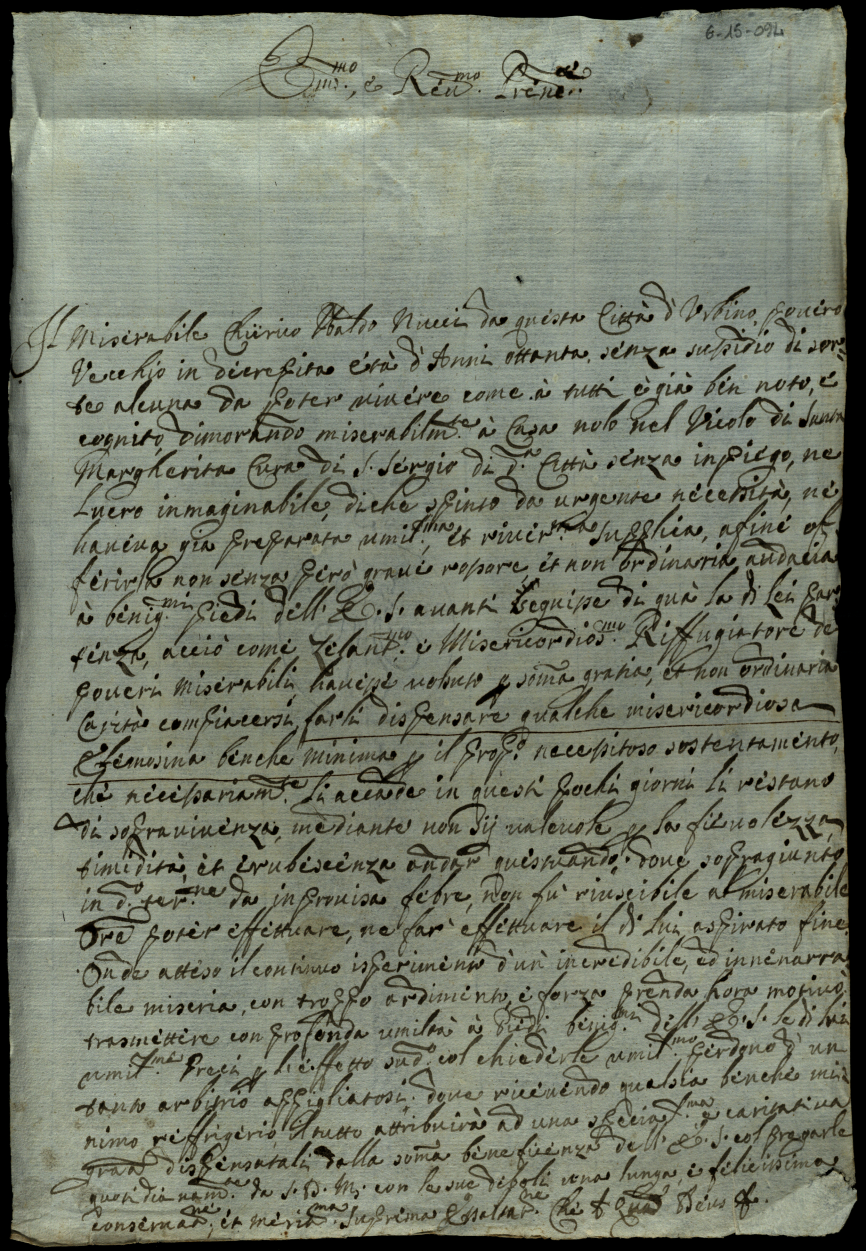 6-15-092
Em.mo, e Reu.mo Prēne.
Il Miserabile Chierico Vbaldo Nucci da questa Città d'Vrbino, pouero
Vecchio in decrepita età d'Anni ottanta, senza sussidio di sor=
te alcuna da poter uiuere come à tutti è già ben noto, e
cognito, dimorando miserabilm.te à Casa nolo nel Vicolo di Santa
Margherita Cura di S. Sergio di d.a Città senza inpiego, ne
Lucro inmaginabile, diche spinto da urgente necessità, ne
haueua gia preparata umil.ma, et riuer.ma supplica, afine of=
ferirla non senza però graue rossore et non ordinaria audacia
à benig.mi piedi dell'E. S. auanti seguisse di quà la di Lei par=
tenza, acciò come Zelant.mo e Misericordios.mo Riffugiatore de
poueri miserabili, hauesse uoluto p soma gratia, et non ordinaria
Carità compiacersi, farli dispensare qualche misericordiosa
Elemosina benche minima p il prop.o necessitoso sostentamento,
che necessariam.te li accade in questi pochi giorni li restano
di soprauiuenza, mediante non sij ualeuole p la fieuolezza,
timidità, et erubescenza andar questuando: doue sopragiunto
in d.o ter.ne da inprouisa febre, non fu riuscibile al miserabile
Ore poter effettuare, ne far effettuare il di lui aspirato fine.
Onde atteso il continuo isperimento d'un incredibile, ed innenarra
bile miseria, con troppo ardimento, è forza prenda hora motiuo
trasmettere con profonda umiltà à Piedi benig.mi dell'E. S. le di lui
umil.me Preci p l'effetto sud.o col chiederle umil.mo perdono d'un
tanto arbitrio appigliatosi: doue riceuendo qualsia benche mi=
nimo reffrigerio, il tutto attribuirà ad una specia.ma e caritatiua
graa dispensatali dalla soma beneficienza dell'E. S. col pregarle
quotidianam.te da S. D. M. con le sue deboli una lunga, e felicissima
conseruat.ne, et merit.ma suprema Esaltat.ne Che Quam Deus